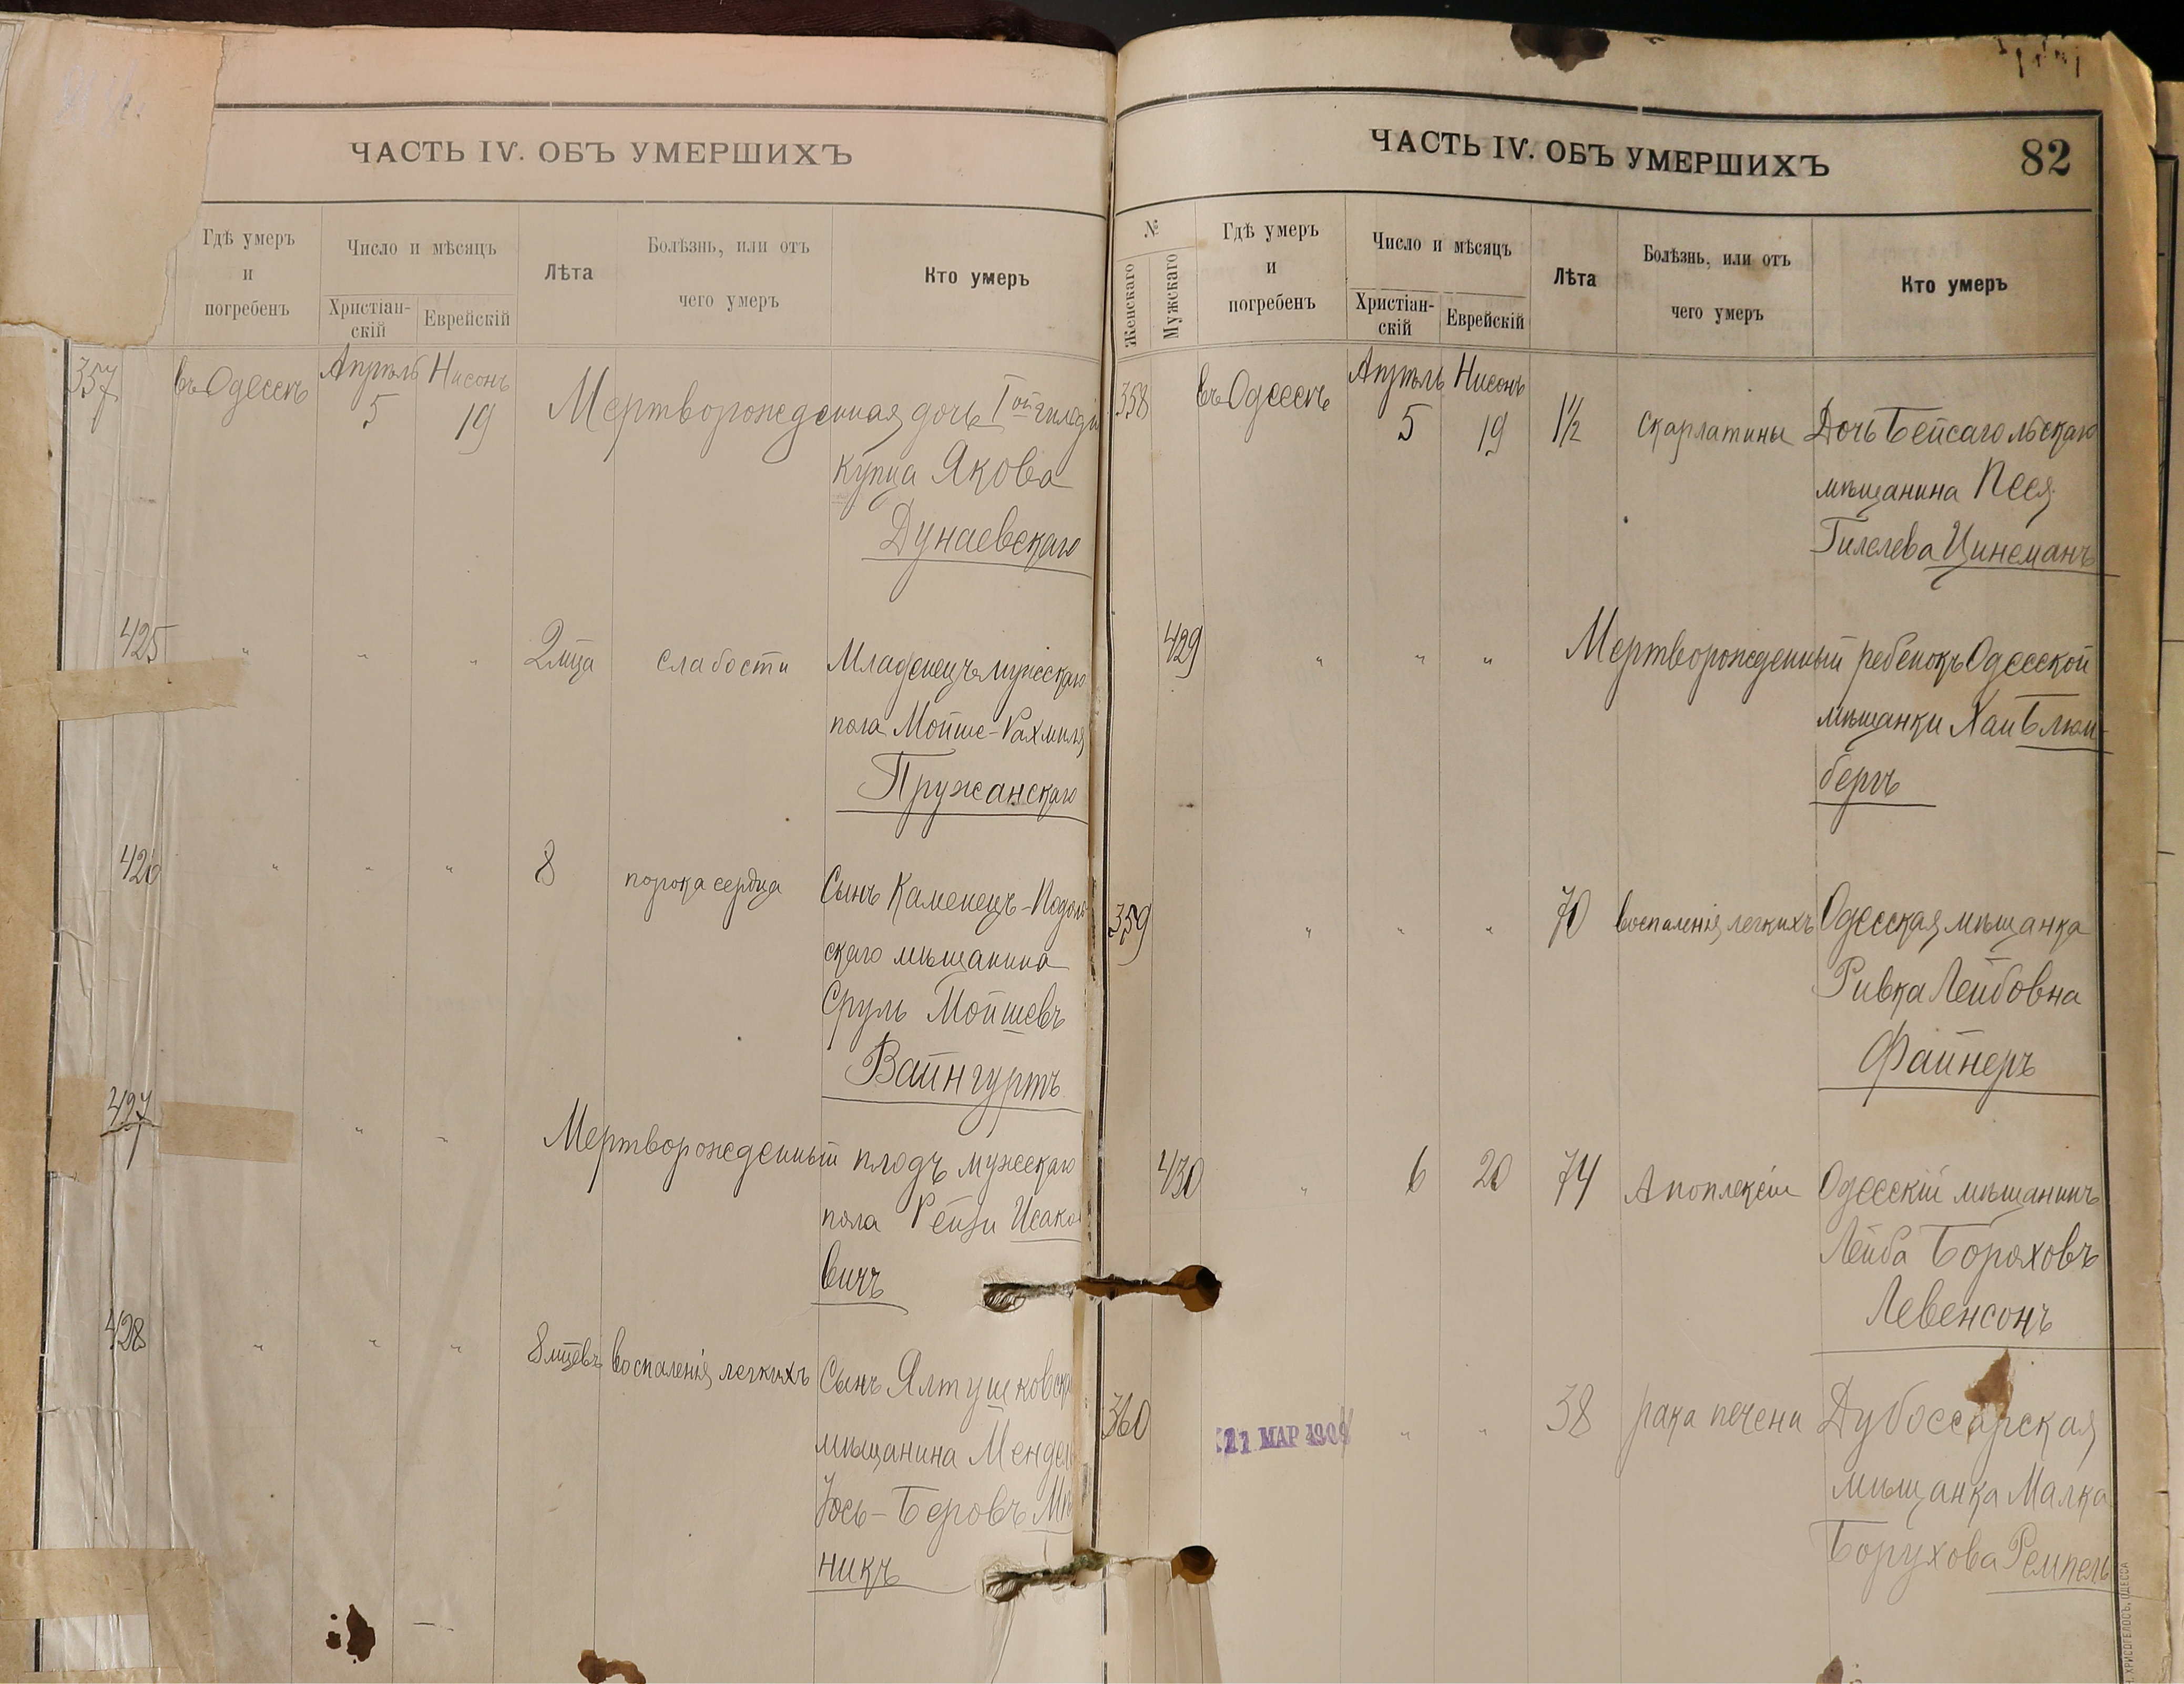 ЧАСТЬ IV. ОБЪ УМЕРШИХЪ
Гдѣ умеръ и погребенъ
Число и мѣсяцъ
Христіан-скій
Еврейскій
Лѣта
Болѣзнь, или отъ чего умеръ
Кто умеръ
357 въ Одессѣ Апрѣль 5 Нисонъ 19 Мертворожденная дочь Iой гильдіи
купца Якова
Дунаевскаго
425 " " " 2 мца слабости Младенецъ мужескаго
пола Мойше-Рахмиля
Пружанскаго
426 " " " 8 порока сердца Сынъ Каменецъ-Подоль
скаго мѣщанина
Сруль Мойшевъ
Вайнгуртъ
427 " " Мертворожденный плодъ мужескаго
пола Рейзи Исако
вичъ
428 " " " 8 мцевъ воспаленія легкихъ Сынъ Ялтушковска
мѣщанина Мендель
Іось-Беровъ
никъ
ЧАСТЬ IV. ОБЪ УМЕРШИХЪ
82
№
Женскаго
Мужскаго
Гдѣ умеръ и погребенъ
Число и мѣсяцъ
Христіан-скій
Еврейскій
Лѣта
Болѣзнь, или отъ чего умеръ
Кто умеръ
358 въ Одессѣ Апрѣль 5 Нисонъ 19 1½ скарлатины Дочь Бейсагольскаго
мѣщанина Песя
Гилелева Цинеманъ
429 " " " Мертворожденный ребенокъ Одесской
мѣщанки Хаи Блюм-
бергъ
359 " " " 70 воспаленія легкихъ Одесская мѣщанка
Ривка Лейбовна
Файнеръ
430 " 6 20 74 Апоплексіи Одесскій мѣщанинъ
Лейба Бороховъ
Левенсонъ
360 21 МАР 1909 " " 38 рака печени Дубоссарская
мѣщанка Малка
Борухова Ремпель